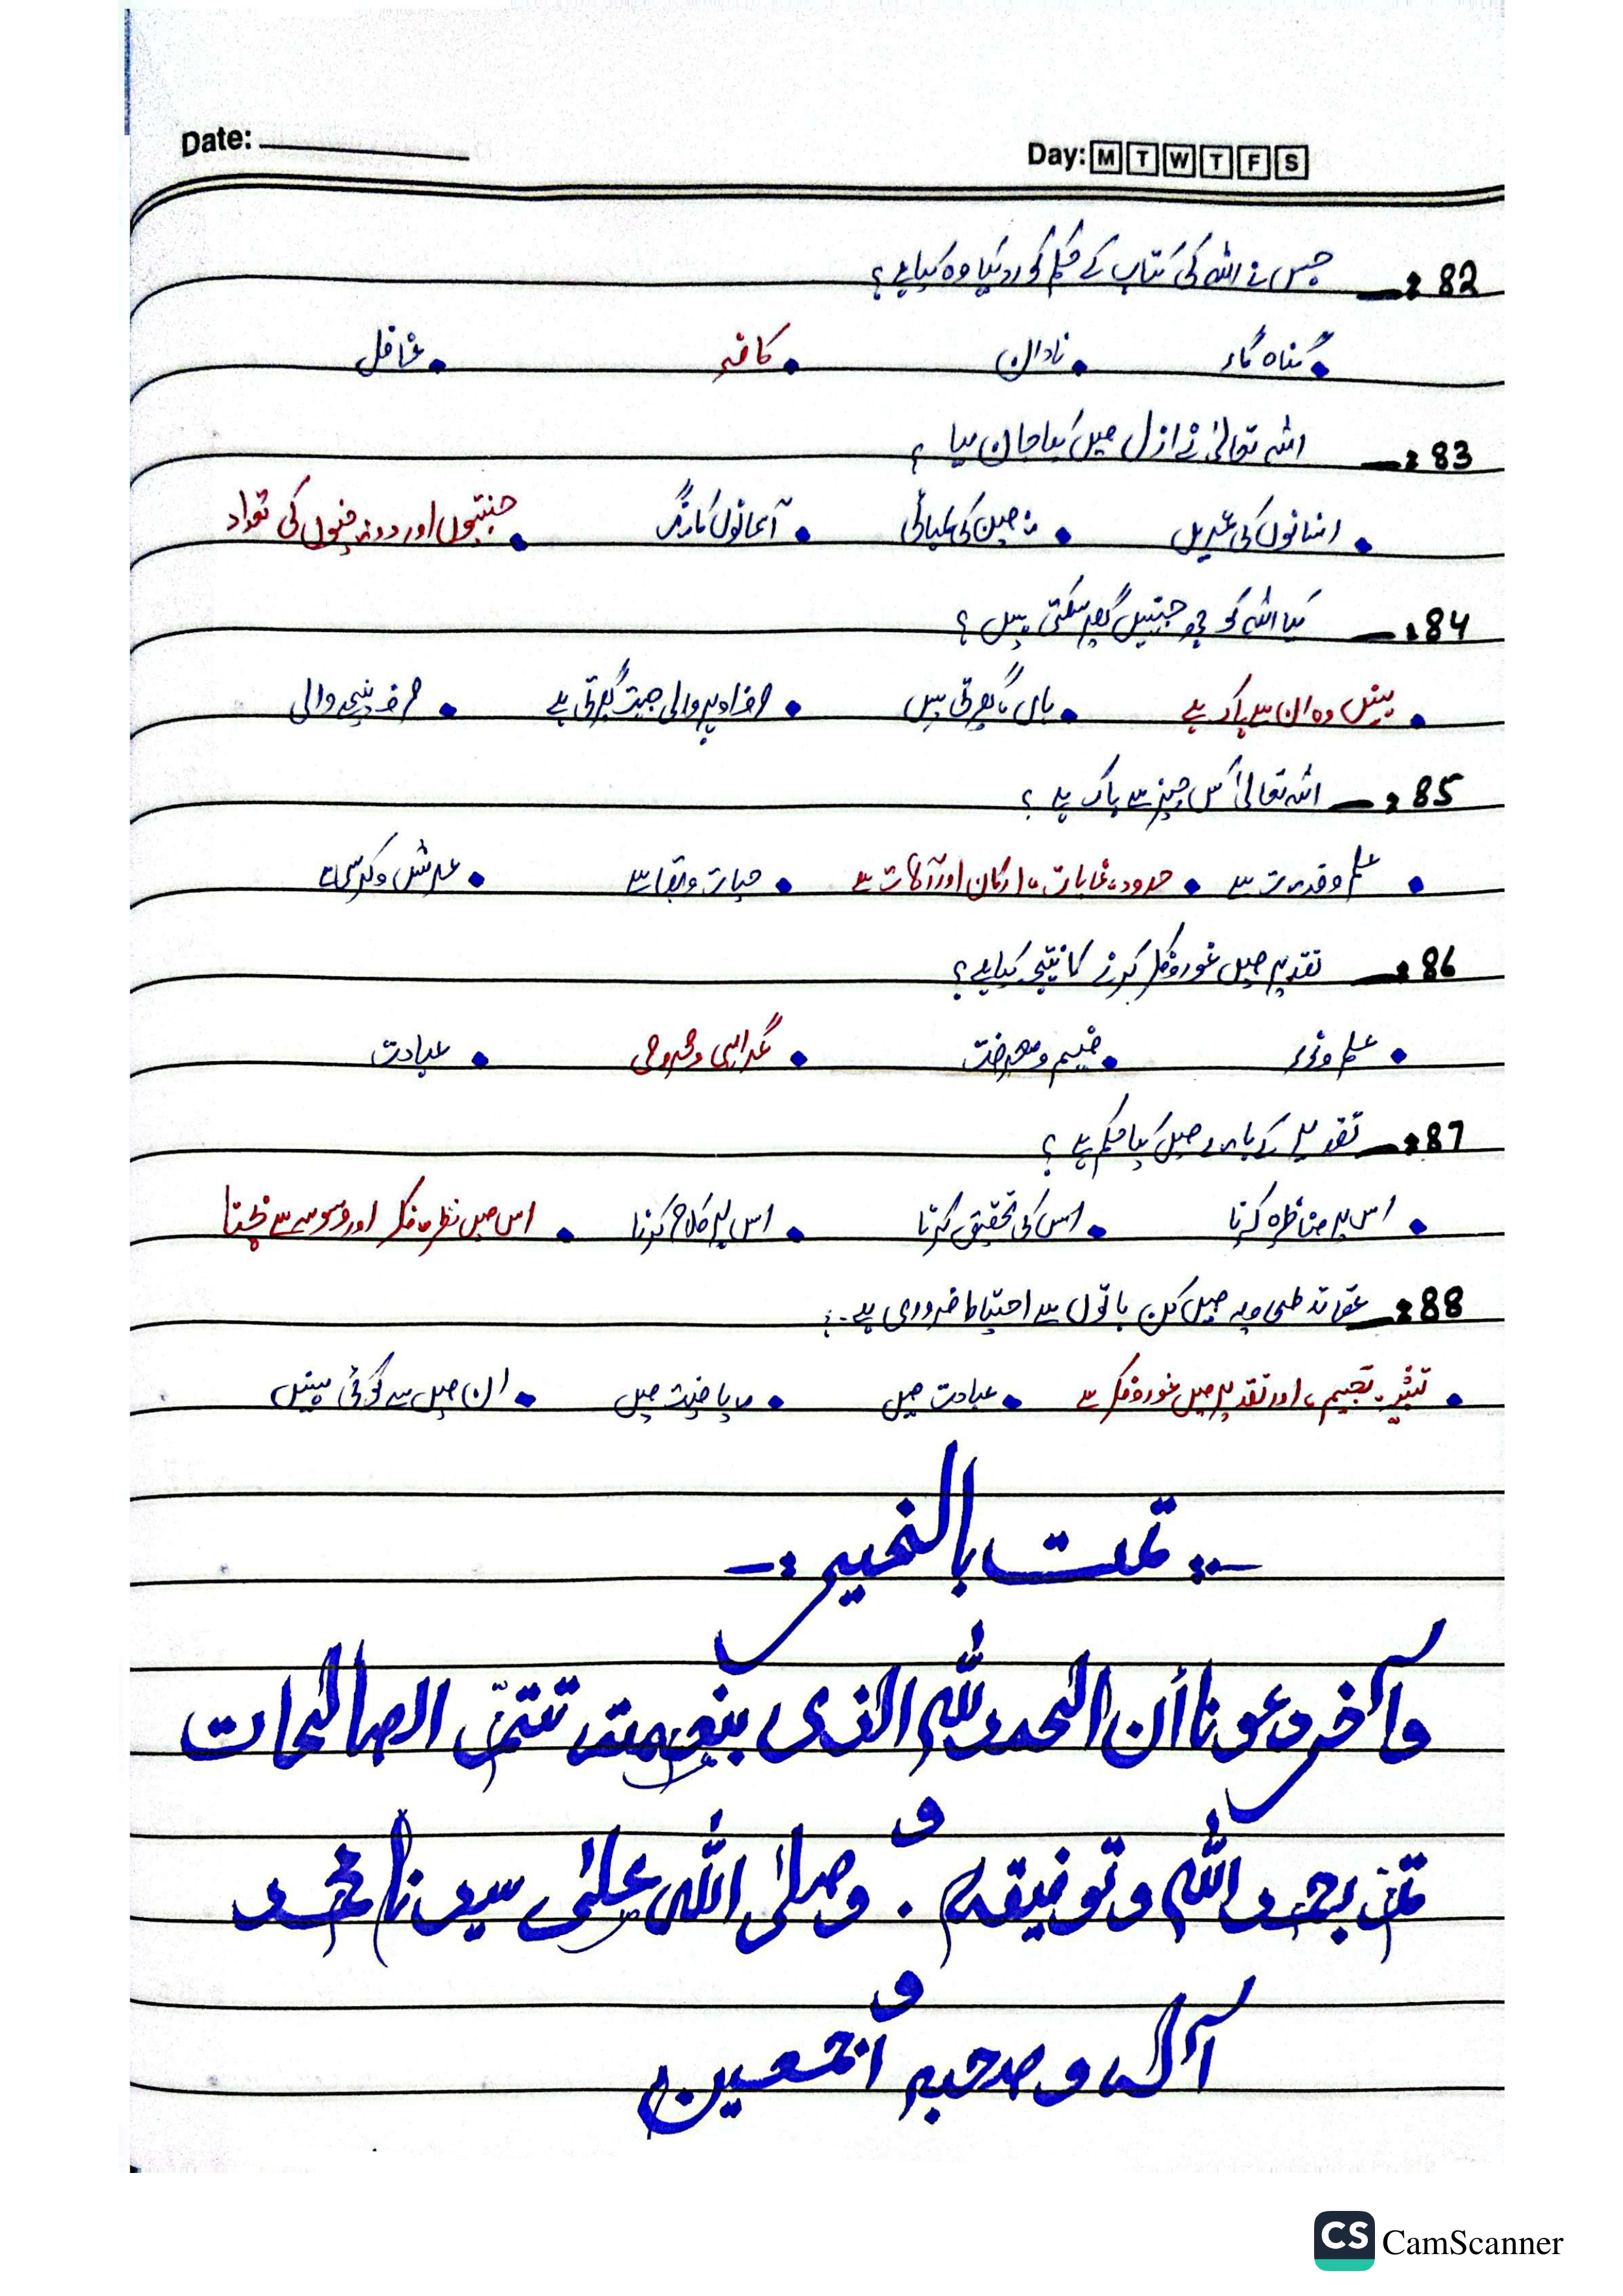 Date: ____________ Day: M T W T F S
82:- جس نے اللہ کی کتاب کے حکم کو رد کیا وہ کیا ہے؟
• گناہ گار • نادان • کافر • غافل
83:- اللہ تعالیٰ نے ازل میں کیا جان لیا ؟
• انسانوں کی عمریں • زمین کی لمبائی • آسمانوں کا رنگ • جنتیوں اور دوزخیوں کی تعداد
84:- کیا اللہ کو چھ جہتیں گھیر سکتی ہیں ؟
• نہیں وہ ان سے پاک ہے • ہاں گھیرتی ہیں • صرف اوپر والی جہت گھیرتی ہے • صرف نیچے والی
85:- اللہ تعالیٰ کس چیز سے پاک ہے ؟
• علم و قدرت سے • حدود، غایات، ارکان اور آلات سے • حیات و بقا سے • عرش و کرسی سے
86:- تقدیر میں غور و فکر کرنے کا نتیجہ کیا ہے؟
• علم و نور • فہم و معرفت • گمراہی و محرومی • عبادت
87:- تقدیر کے بارے میں کیا حکم ہے ؟
• اس پر مناظرہ کرنا • اس کی تحقیق کرنا • اس پر کلام کرنا • اس میں نظر، فکر اور وسوسے سے بچنا
88:- عقائد طحاویہ میں کن باتوں سے احتیاط ضروری ہے؟
• تشبیہ، تجسیم، اور تقدیر میں غور و فکر سے • عبادت میں • ریاضت میں • ان میں سے کوئی نہیں
-: تمت بالخیر :-
وآخر دعونا أن الحمد للہ الذی بنعمتہ تتمّ الصالحات
تم بحمد اللہ و توفیقہ . و صلی اللہ علی سیدنا محمد و
آلہ و صحبہ أجمعین
CS CamScanner